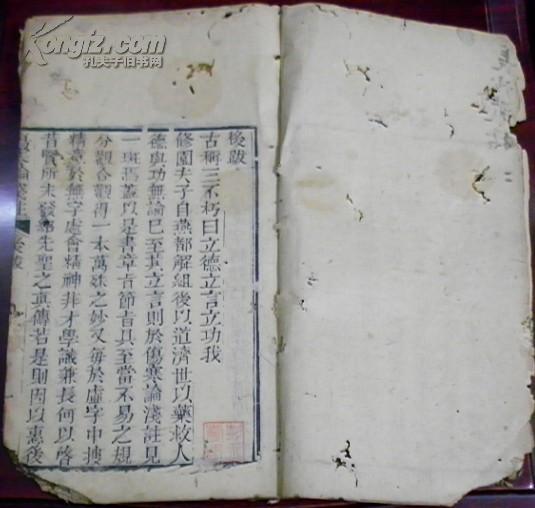 Kongfz.com
孔夫子旧书网
後跋
古稱三不朽曰立德立言立功我
修園夫子自燕都解組後以道濟世以藥救人
德與功無論已至其立言則於傷寒論淺註見
一斑焉蓋以是書章旨節旨具至當不易之規
分觀合觀得一本萬殊之妙又每於虛字中摉
精意於無字處會精神非才學識兼長何以啓
昔賢所未發紹先聖之真傳若是則因以惠後
傷寒論淺註 後跋